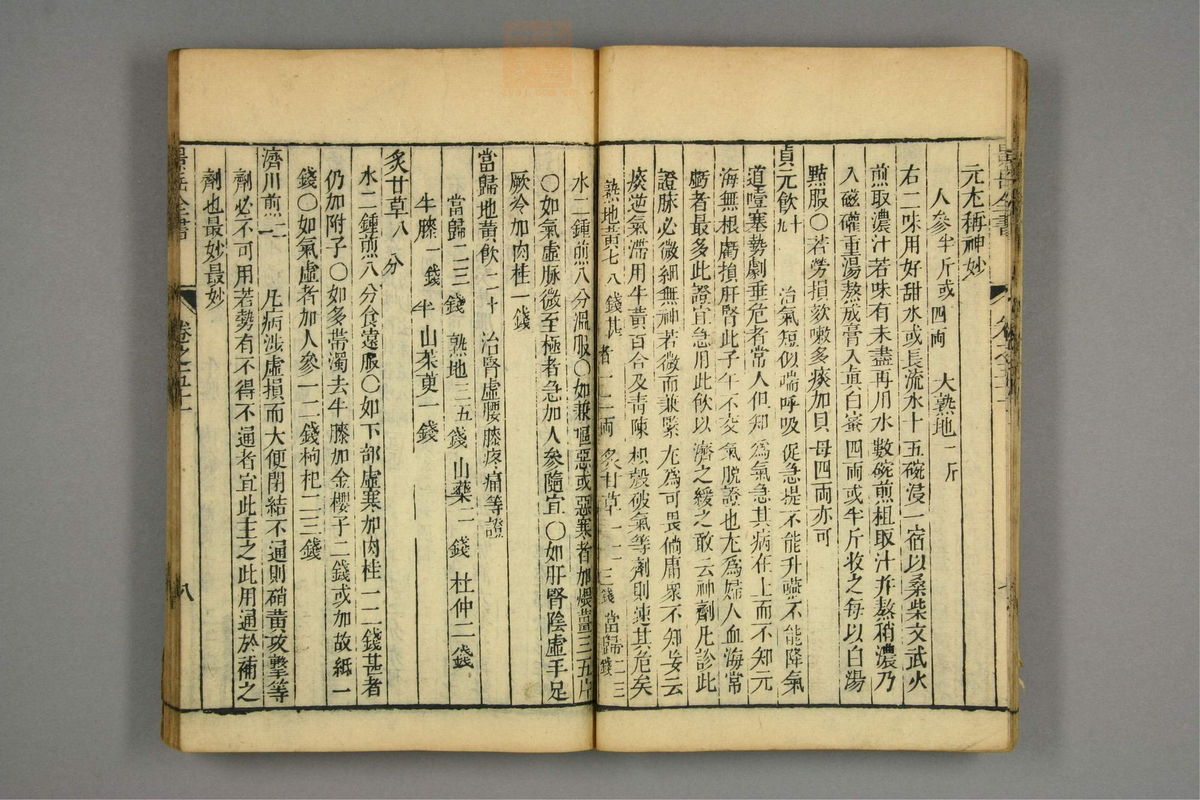 元尤稱神妙
人參半斤或四兩 大熟地一斤
右二味用好甜水或長流水十五碗浸一宿以桑柴文武火
煎取濃汁若味有未盡再用水數碗煎柤取汁并熬稍濃乃
入磁罐重湯熬成膏入真白蜜四兩或半斤收之每以白湯
點服○若勞損欬嗽多痰加貝母四兩亦可
貞元飲十九 治氣短似喘呼吸促急提不能升嚥不能降氣
道噎塞勢劇垂危者常人但知為氣急其病在上而不知元
海無根虧損肝腎此子午不交氣脫證也尤為婦人血海常
虧者最多此證宜急用此飲以濟之緩之敢云神劑凡診此
證脉必微細無神若微而兼緊尤為可畏倘庸衆不知妄云
痰逆氣滯用牛黃百合及青陳枳殼破氣等劑則速其危矣
熟地黃七八錢甚者一二兩 炙甘草一二三錢 當歸二三錢
水二鍾煎八分溫服○如兼嘔惡或惡寒者加煨薑三五片
○如氣虛脉微至極者急加人參隨宜○如肝腎陰虛手足
厥冷加肉桂一錢
當歸地黃飲二十 治腎虛腰膝疼痛等證
當歸二三錢 熟地三五錢 山藥二錢 杜仲二錢
牛膝一錢半 山茱萸一錢
炙甘草八分
水二鍾煎八分食遠服○如下部虛寒加肉桂一二錢甚者
仍加附子○如多帶濁去牛膝加金櫻子二錢或加故紙一
錢○如氣虛者加人參一二錢枸杞二三錢
濟川煎二一 凡病涉虛損而大便閉結不通則硝黃攻擊等
劑必不可用若勢有不得不通者宜此主之此用通於補之
劑也最妙最妙
景岳全書 卷之五十一 八